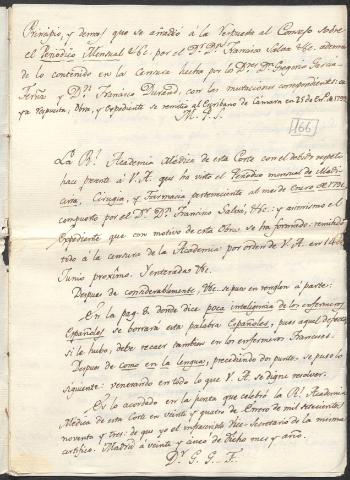 Principio, y demas que se añadió á la Respuesta al Consejo sobre
el Periodico Mensual &c. por el Dr. Dn. Francisco Salva &c. ademas
de lo contenido en la Censura hecha por los Drs. Dn. Gregorio Garcia
Fernz. y Dn. Francisco Durand, con las mutaciones correspondientes: cu
ya respuesta, Obra, y expediente se remitió al Escribano de Camara en 25 de En.o de 1793
M. P. S.
166
La Rl. Academia Medica de esta Corte con el debido respeto
hace presente á V. A. que ha visto el Periodico mensual de Medi
cina, Cirugia, y Farmacia perteneciente al mes de Enero de 1791,
compuesto por el Dr. Dn. Francisco Salvá, &c.: y asimismo el
Expediente que con motivo de esta Obra se ha formado: remitido
tido á la censura de la Academia por orden de V. A. en 14 de
Junio proximo. Y enterada &c.
Despues de considerablemente &c. se puso en renglon á parte:
En la pag. 8 donde dice poca inteligencia de los enfermeros
Españoles se borrará esta palabra Españoles, pues aquel defecto,
si le hubo, debe recaer tambien en los enfermeros Franceses.
Despues de como en la lengua, precediendo dos puntos, se puso lo
siguiente: venerando en todo lo que V. A. se digne resolver.
Es lo acordado en la junta que celebró la Rl. Academia
Medica de esta Corte en veinte y quatro de Enero de mil setecientos
noventa y tres: de que yo el infraescripto Vice-Secretario de la misma
certifico. Madrid á veinte y cinco de dicho mes y año.
Dr. G. G. F.